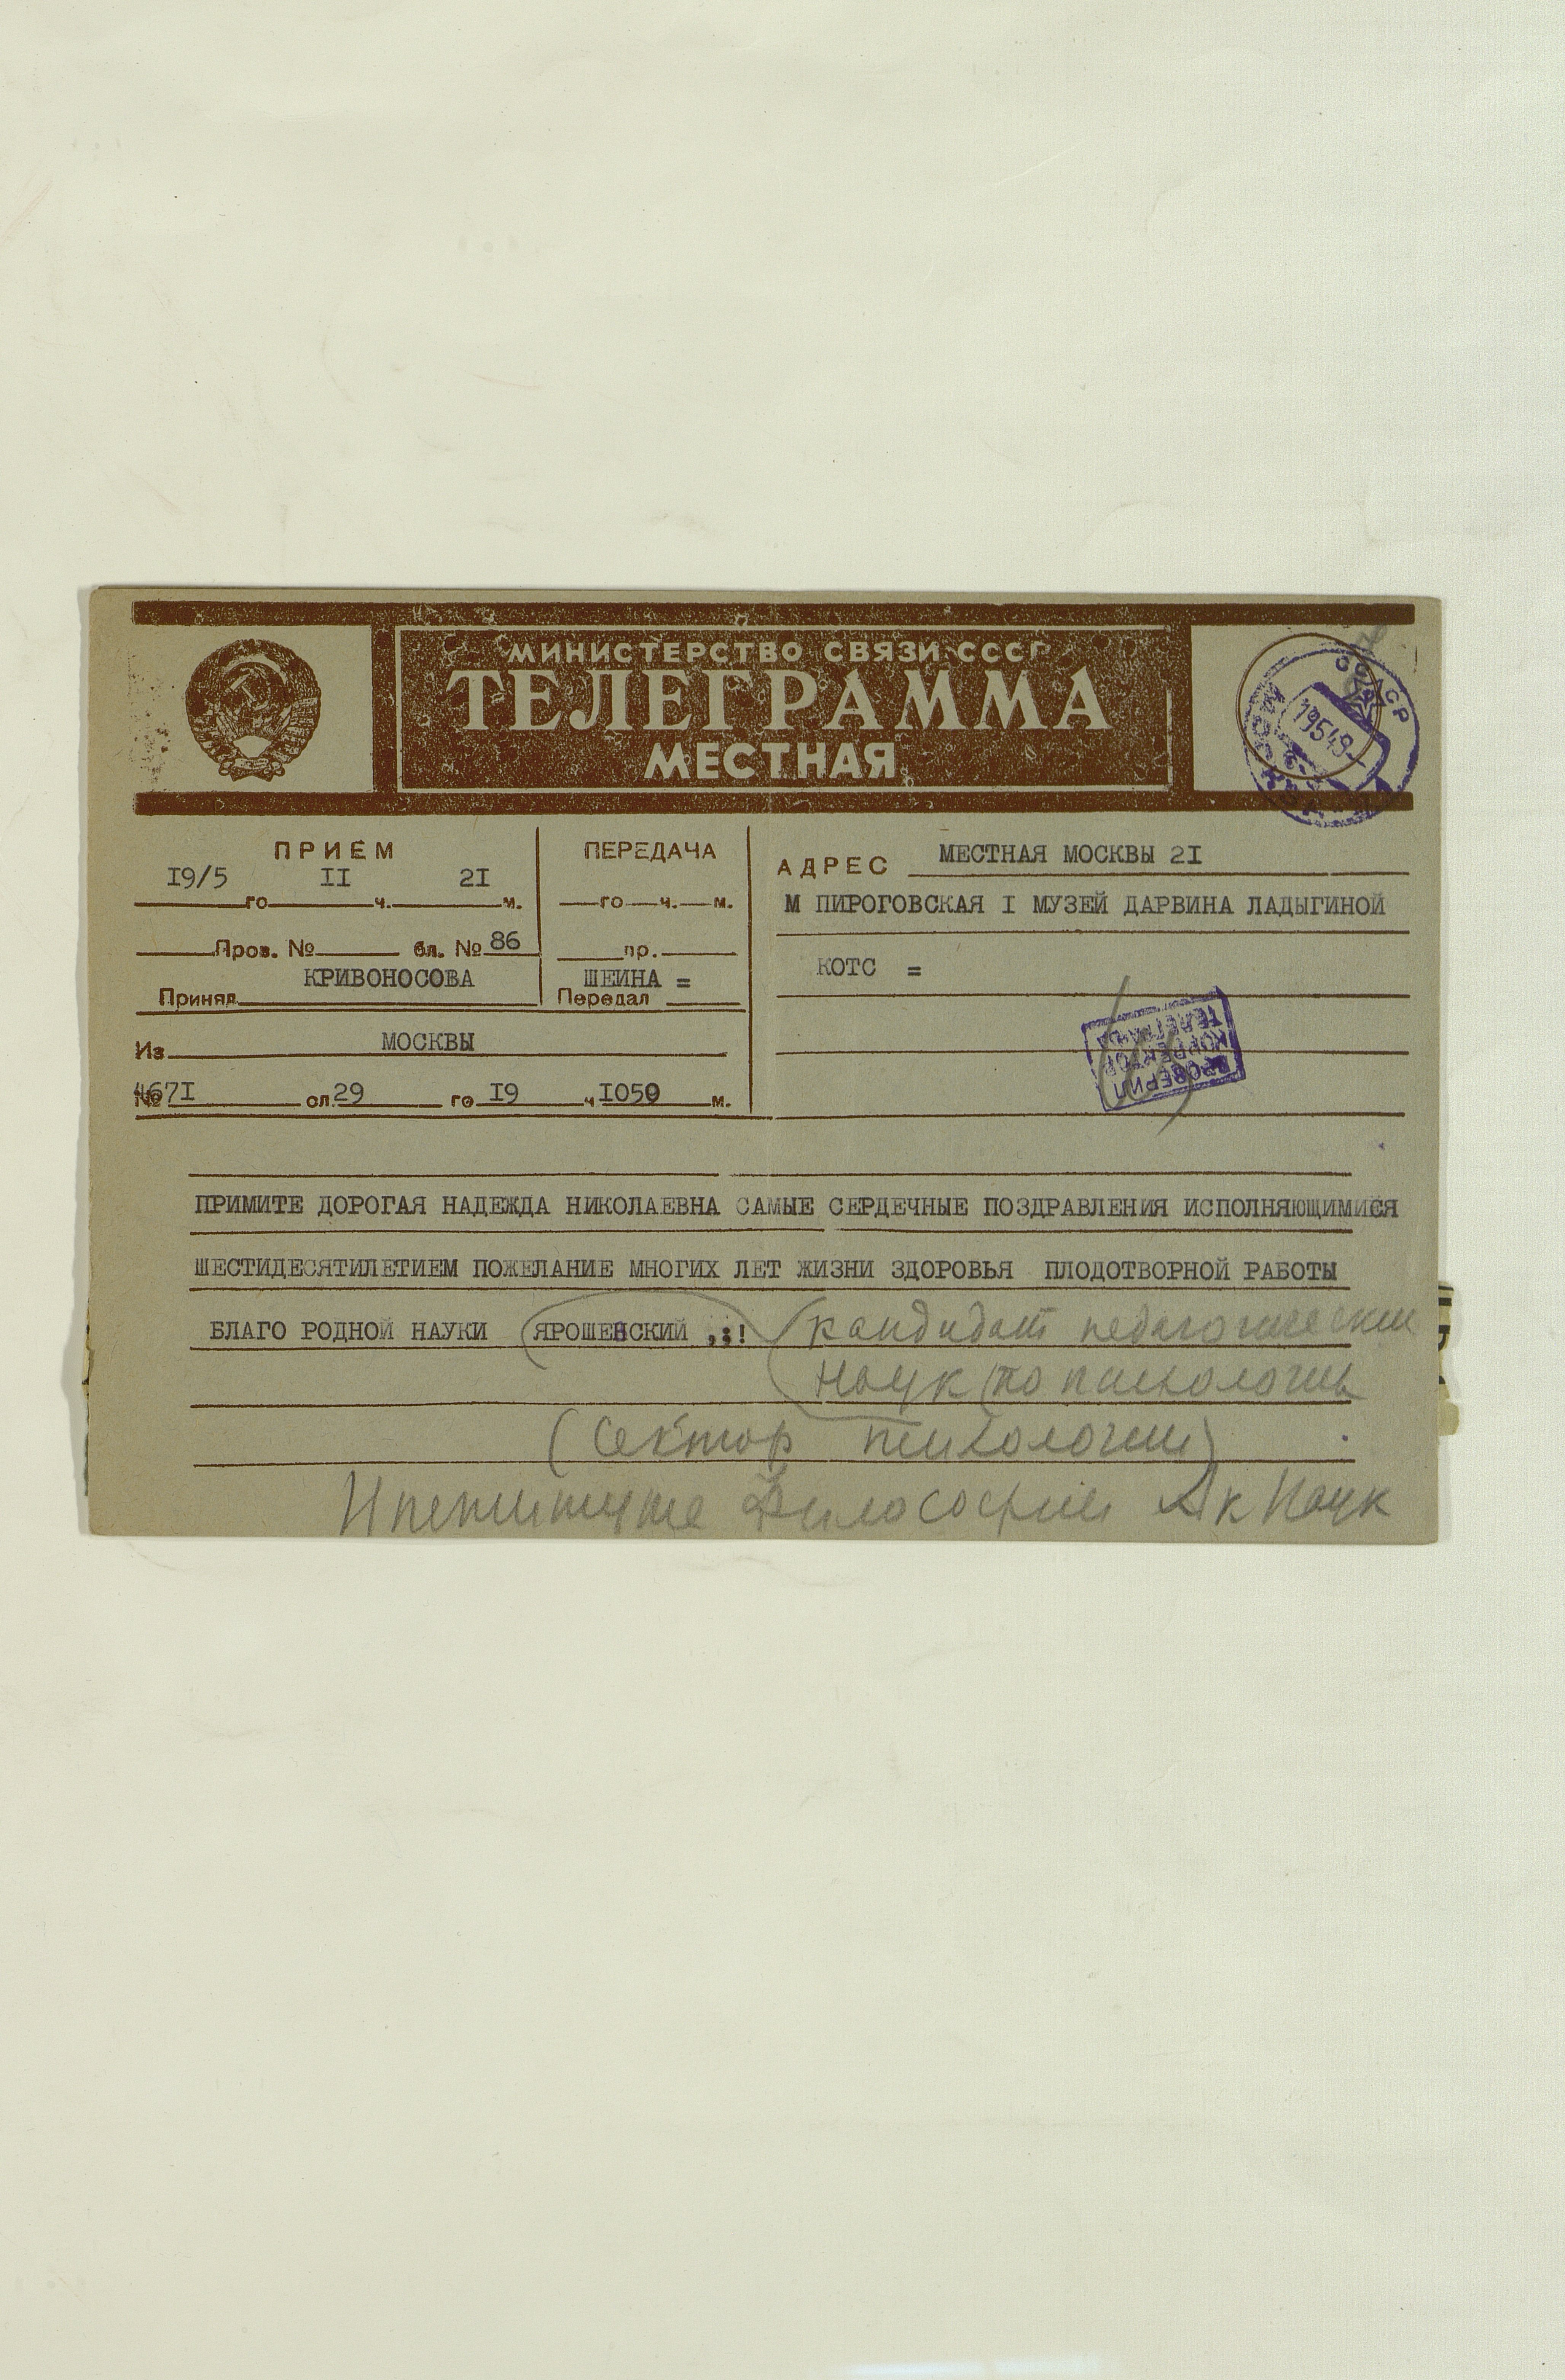 МИНИСТЕРСТВО СВЯЗИ СССР
ТЕЛЕГРАММА
МЕСТНАЯ
МОСКВА
19549
ПРИЕМ
19/5 го II ч. 2I м.
Пров. № бл. № 86
КРИВОНОСОВА
Принял
ПЕРЕДАЧА
го ч. м.
пр.
ШЕИНА =
Передал
Из МОСКВЫ
№ 467I сл. 29 го I9 ч I050 м.
АДРЕС МЕСТНАЯ МОСКВЫ 2I
М ПИРОГОВСКАЯ I МУЗЕЙ ДАРВИНА ЛАДЫГИНОЙ
КОТС =
ПРОВЕРИЛ
КОРРЕКТОР
ТЕЛЕГРАФА
ПРИМИТЕ ДОРОГАЯ НАДЕЖДА НИКОЛАЕВНА САМЫЕ СЕРДЕЧНЫЕ ПОЗДРАВЛЕНИЯ ИСПОЛНЯЮЩИМИСЯ
ШЕСТИДЕСЯТИЛЕТИЕМ ПОЖЕЛАНИЕ МНОГИХ ЛЕТ ЖИЗНИ ЗДОРОВЬЯ ПЛОДОТВОРНОЙ РАБОТЫ
БЛАГО РОДНОЙ НАУКИ ЯРОШЕНСКИЙ ,;! кандидат педагогических
наук (по психологии
(Сектор психологии)
Институте Философии Ак Наук